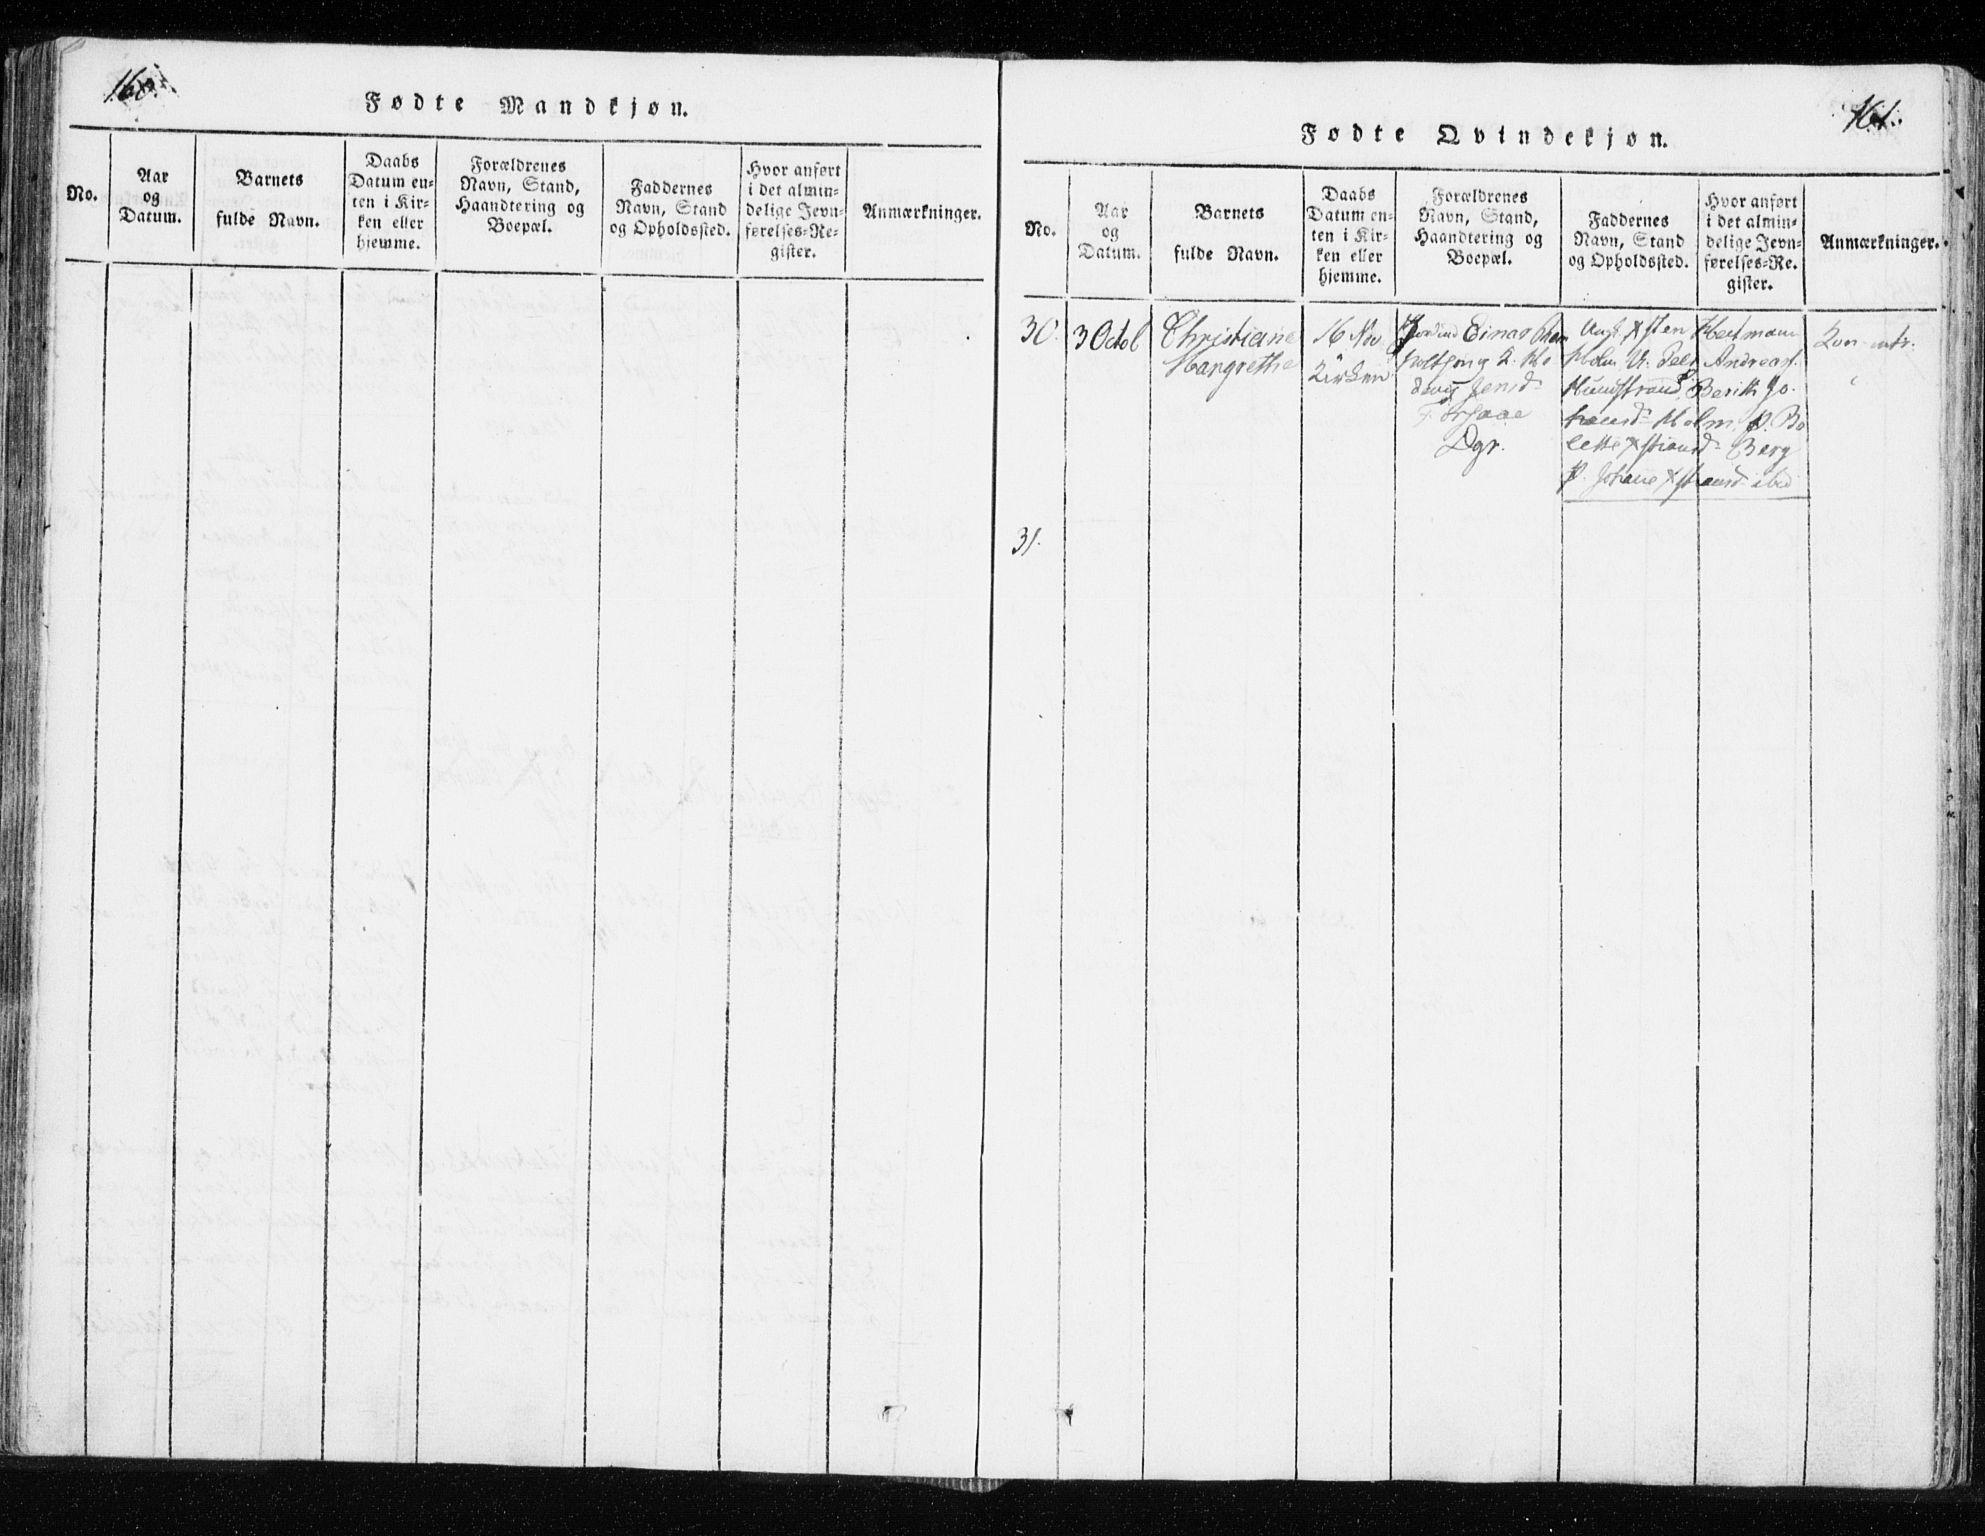 160.
Fødte Mandkjøn.
No.
Aar
og
Datum.
Barnets
fulde Navn.
Daabs
Datum en-
ten i Kir-
ken eller
hjemme.
Forældrenes
Navn, Stand,
Haandtering og
Boepæl.
Faddernes
Navn, Stand
og Opholdssted.
Hvor anført
i det almin-
delige Jevn-
førelses-Re-
gister.
Anmærkninger.
161.
Fødte Qvindekjøn.
No.
Aar
og
Datum.
Barnets
fulde Navn.
Daabs
Datum en-
ten i Kir-
ken eller
hjemme.
Forældrenes
Navn, Stand,
Haandtering og
Boepæl.
Faddernes
Navn, Stand
og Opholdssted.
Hvor anført
i det almin-
delige Jevn-
førelses-Re-
gister.
Anmærkninger.
30.
3 Octob
Christiane
Margrethe
16 Nov
Kirken
Einar
Jensd
Dgr.
Ungk. Xsten Hermans
Holm U. Peder Andreas.
Berith Jo-
hansd Holm. P. Bo
lette Xstiansd Berg
P. Johane Xstiansd ibid
31.